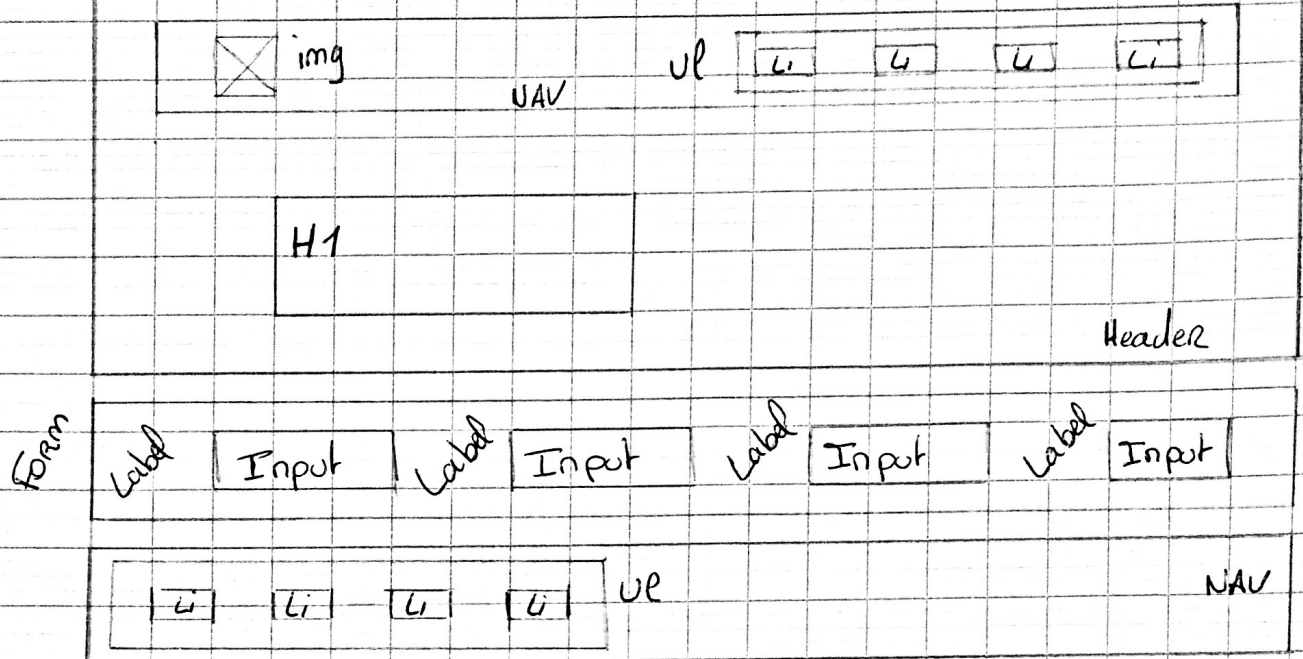 img
UL Li Li Li Li
NAV
H1
Header
FORM Label Input Label Input Label Input Label Input
Li Li Li Li UL
NAV